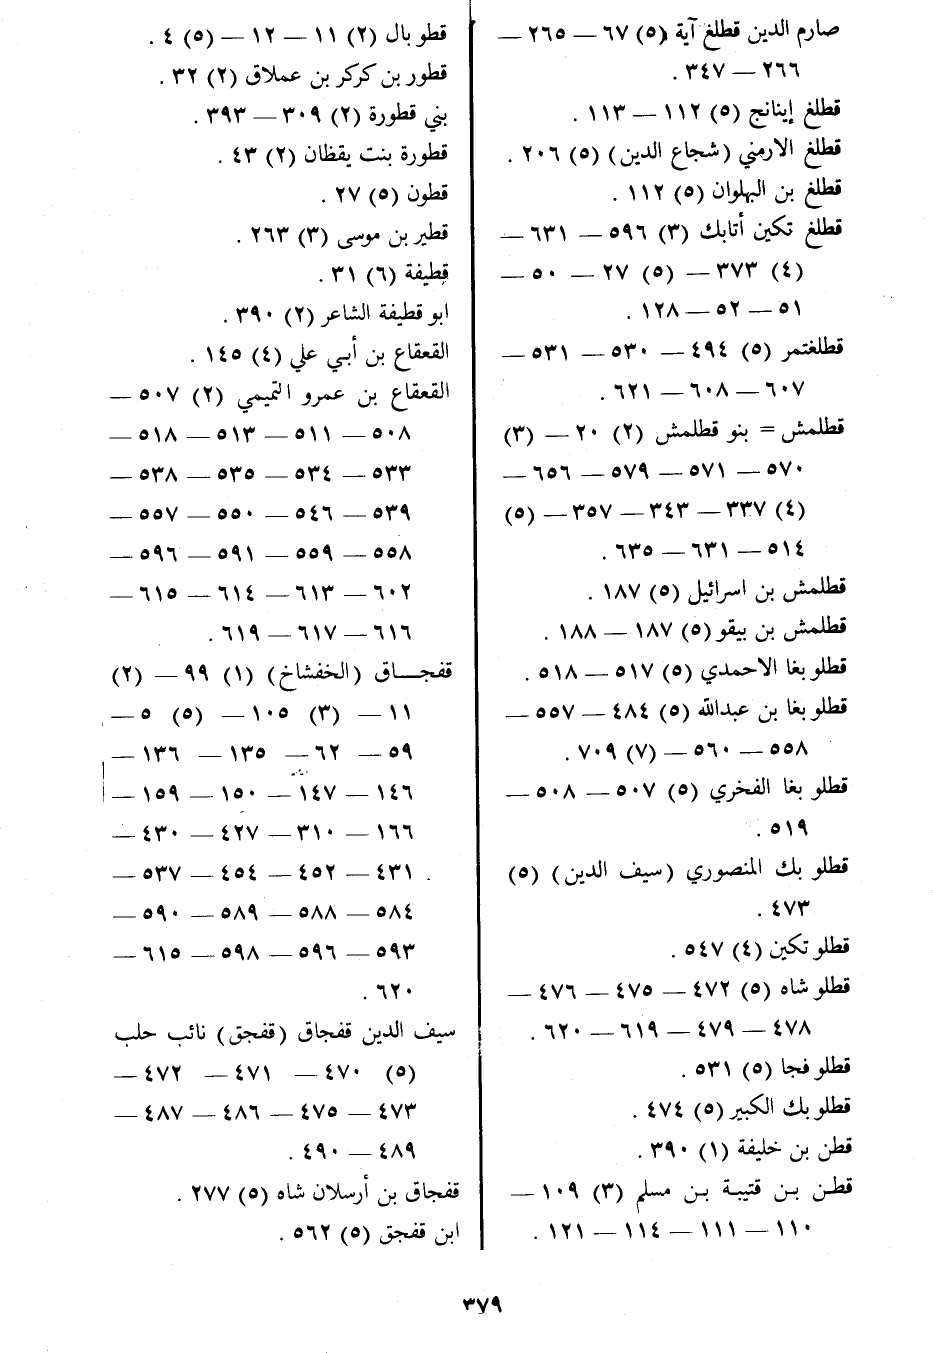 صارم الدين قطلغ آية (٥) ٦٧ — ٢٦٥ —
٢٦٦ — ٣٤٧ .
قطلغ إينانج (٥) ١١٢ — ١١٣ .
قطلغ الارمني (شجاع الدين) (٥) ٢٠٦ .
قطلغ بن البهلوان (٥) ١١٢ .
قطلغ تكين أتابك (٣) ٥٩٦ — ٦٣١ —
(٤) ٣٧٣ — (٥) ٢٧ — ٥٠ —
٥١ — ٥٢ — ١٢٨ .
قطلغتمر (٥) ٤٩٤ — ٥٣٠ — ٥٣١ —
٦٠٧ — ٦٠٨ — ٦٢١ .
قطلمش = بنو قطلمش (٢) ٢٠ — (٣)
٥٧٠ — ٥٧١ — ٥٧٩ — ٦٥٦ —
(٤) ٣٣٧ — ٣٤٣ — ٣٥٧ — (٥)
٥١٤ — ٦٣١ — ٦٣٥ .
قطلمش بن اسرائيل (٥) ١٨٧ .
قطلمش بن بيقو (٥) ١٨٧ — ١٨٨ .
قطلو بغا الاحمدي (٥) ٥١٧ — ٥١٨ .
قطلو بغا بن عبدالله (٥) ٤٨٤ — ٥٥٧ —
٥٥٨ — ٥٦٠ — (٧) ٧٠٩ .
قطلو بغا الفخري (٥) ٥٠٧ — ٥٠٨ —
٥١٩ .
قطلو بك المنصوري (سيف الدين) (٥)
٤٧٣ .
قطلو تكين (٤) ٥٤٧ .
قطلو شاه (٥) ٤٧٢ — ٤٧٥ — ٤٧٦ —
٤٧٨ — ٤٧٩ — ٦١٩ — ٦٢٠ .
قطلو فجا (٥) ٥٣١ .
قطلو بك الكبير (٥) ٤٧٤ .
قطن بن خليفة (١) ٣٩٠ .
قطن بن قتيبة بن مسلم (٣) ١٠٩ —
١١٠ — ١١١ — ١١٤ — ١٢١ .
قطو بال (٢) ١١ — ١٢ — (٥) ٤ .
قطور بن كركر بن عملاق (٢) ٣٢ .
بني قطورة (٢) ٣٠٩ — ٣٩٣ .
قطورة بنت يقظان (٢) ٤٣ .
قطون (٥) ٢٧ .
قطير بن موسى (٣) ٢٦٣ .
قطيفة (٦) ٣١ .
ابو قطيفة الشاعر (٢) ٣٩٠ .
القعقاع بن أبي علي (٤) ١٤٥ .
القعقاع بن عمرو التميمي (٢) ٥٠٧ —
٥٠٨ — ٥١١ — ٥١٣ — ٥١٨ —
٥٣٣ — ٥٣٤ — ٥٣٥ — ٥٣٨ —
٥٣٩ — ٥٤٦ — ٥٥٠ — ٥٥٧ —
٥٥٨ — ٥٥٩ — ٥٩١ — ٥٩٦ —
٦٠٢ — ٦١٣ — ٦١٤ — ٦١٥ —
٦١٦ — ٦١٧ — ٦١٩ .
قفجاق (الخفشاخ) (١) ٩٩ — (٢)
١١ — (٣) ١٠٥ — (٥) ٥ —
٥٩ — ٦٢ — ١٣٥ — ١٣٦ —
١٤٦ — ١٤٧ — ١٥٠ — ١٥٩ —
١٦٦ — ٣١٠ — ٤٢٧ — ٤٣٠ —
٤٣١ — ٤٥٢ — ٤٥٤ — ٥٣٧ —
٥٨٤ — ٥٨٨ — ٥٨٩ — ٥٩٠ —
٥٩٣ — ٥٩٦ — ٥٩٨ — ٦١٥ —
٦٢٠ .
سيف الدين قفجاق (قفجق) نائب حلب
(٥) ٤٧٠ — ٤٧١ — ٤٧٢ —
٤٧٣ — ٤٧٥ — ٤٨٦ — ٤٨٧ —
٤٨٩ — ٤٩٠ .
قفجاق بن أرسلان شاه (٥) ٢٧٧ .
ابن قفجق (٥) ٥٦٢ .
٣٧٩